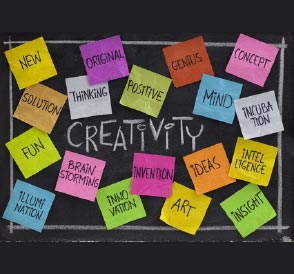 NEW
ORIGINAL
GENIUS
CONCEPT
SOLUTION
THINKING
POSITIVE
MIND
INCUBA
TION
CREATIVITY
FUN
BRAIN
STORMING
INVENTION
IDEAS
INTEL
LIGENCE
ILLUMI
NATION
INNO
VATION
ART
INSIGHT